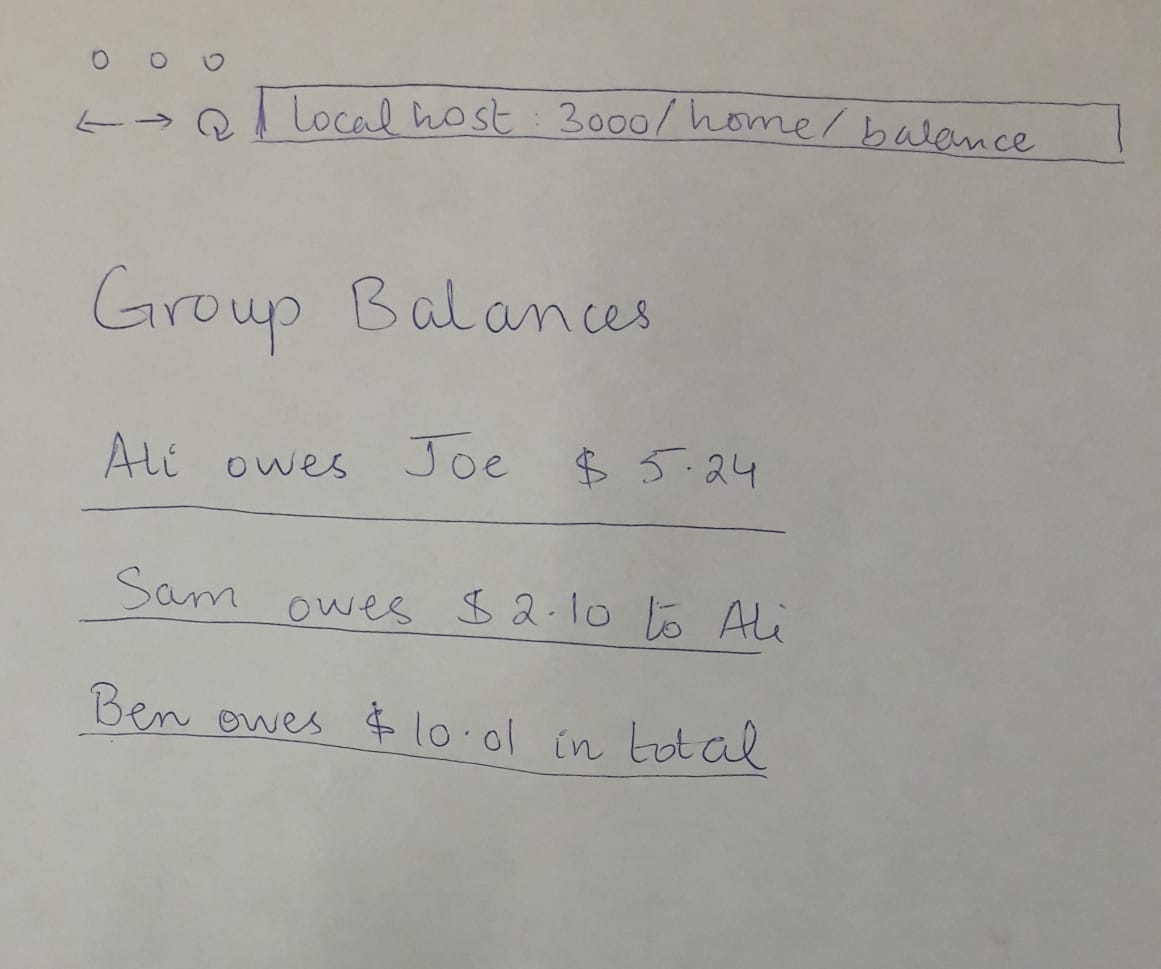 localhost:3000/home/balance
Group Balances
Ali owes Joe $ 5.24
Sam owes $ 2.10 to Ali
Ben owes $ 10.01 in total